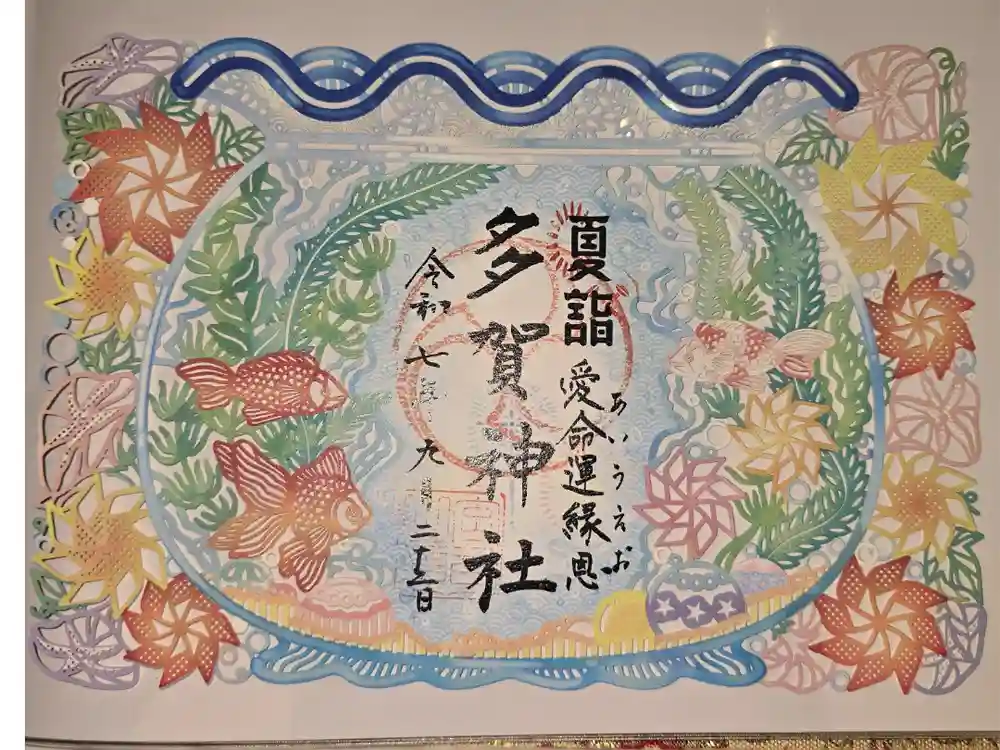 夏詣
愛命運縁恩
あいうえお
多賀神社
令和七年九月二十三日